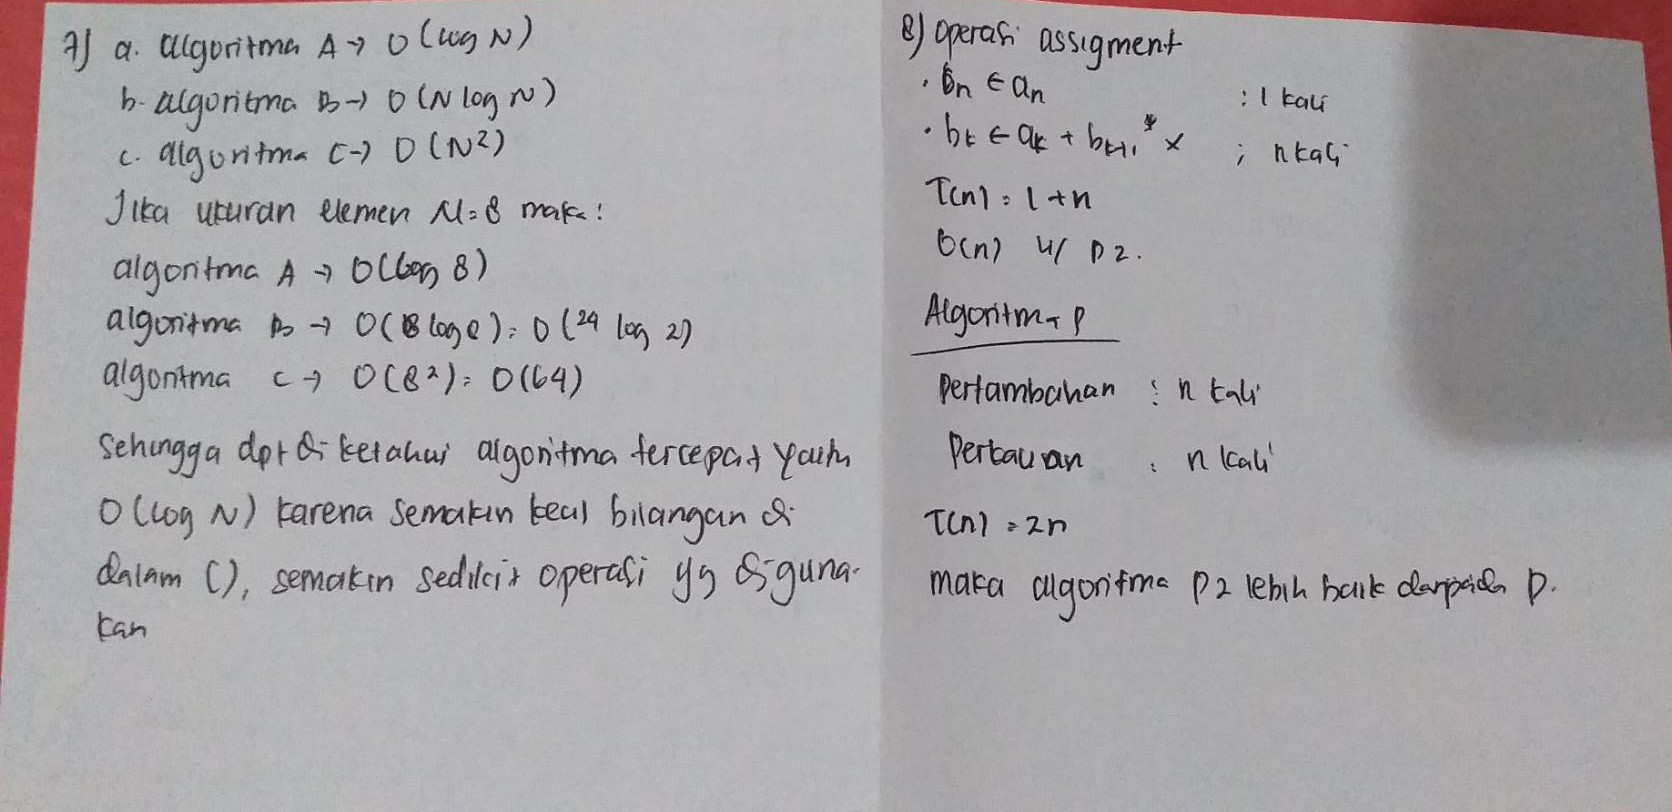 7) a. algoritma A → O(log N)
b. algoritma B → O(N log N)
c. algoritma C → O(N²)
Jika ukuran elemen N=8 maka:
algoritma A → O(log 8)
algoritma B → O(8 log 8) = O(24 log 2)
algoritma C → O(8²) = O(64)
Sehingga dpt diketahui algoritma tercepat yaitu
O(log N) karena semakin kecil bilangan di
dalam (), semakin sedikit operasi yg diguna-
kan
8) Operasi assigment
• bn ← an : 1 kali
• bk ← ak + bk+1 * x ; n kali
T(n) = 1 + n
O(n) u/ P2.
Algoritma P
Pertambahan : n kali
Perkalian : n kali
T(n) = 2n
maka algoritma P2 lebih baik daripada P.